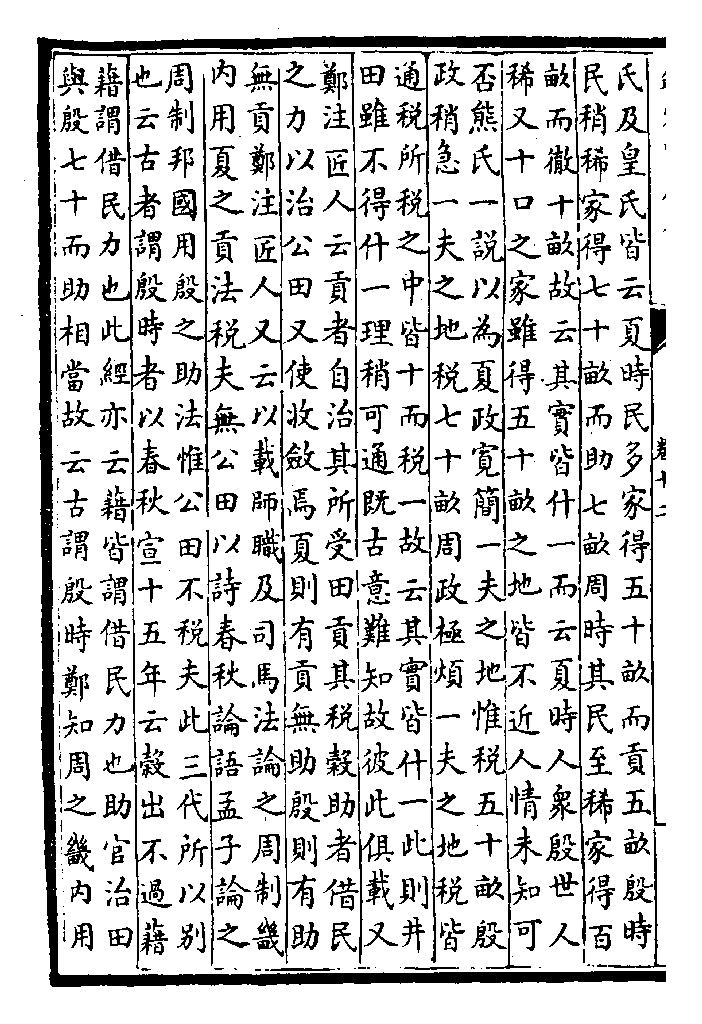 氏及皇氏皆云夏時民多家得五十畝而貢五畝殷時
民稍稀家得七十畝而助七畝周時其民至稀家得百
畝而徹十畝故云其實皆什一而云夏時人衆殷世人
稀又十口之家雖得五十畝之地皆不近人情未知可
否熊氏一說以為夏政寛簡一夫之地惟稅五十畝殷
政稍急一夫之地稅七十畝周政極煩一夫之地稅皆
通稅所稅之中皆十而稅一故云其實皆什一此則井
田雖不得什一理稍可通既古意難知故彼此俱載又
鄭注匠人云貢者自治其所受田貢其稅穀助者借民
之力以治公田又使收斂焉夏則有貢無助殷則有助
無貢鄭注匠人又云以載師職及司馬法論之周制畿
内用夏之貢法稅夫無公田以詩春秋論語孟子論之
周制邦國用殷之助法惟公田不稅夫此三代所以别
也云古者謂殷時者以春秋宣十五年云穀出不過藉
藉謂借民力也此經亦云藉皆謂借民力也助官治田
與殷七十而助相當故云古謂殷時鄭知周之畿内用